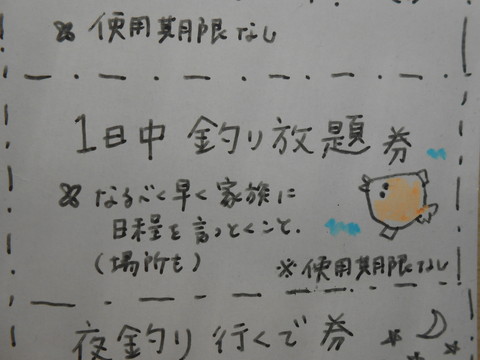 ※使用期限なし
1日中 釣り放題 券
※なるべく早く家族に
日程を言っとくこと.
(場所も)
※使用期限なし
夜釣り行くで券